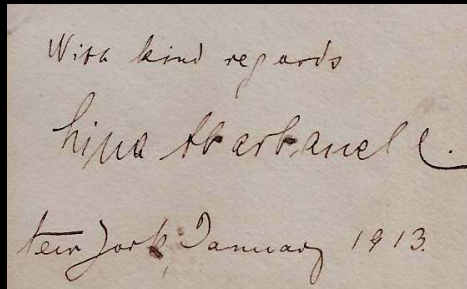 With kind regards
Lina Abarbanell.
New York, January 1913.